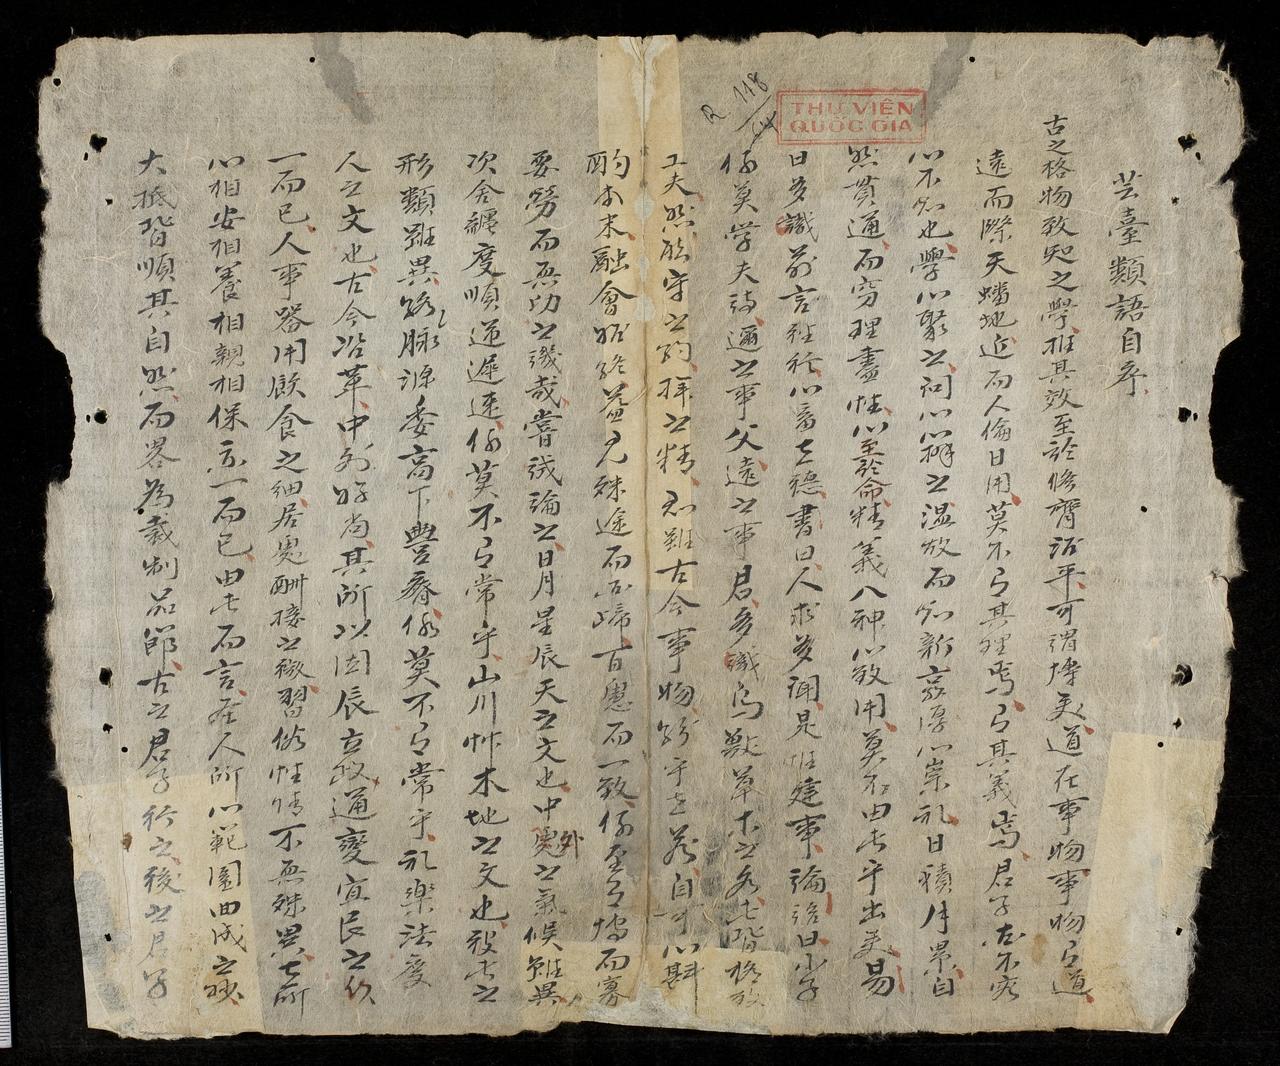 R. 118
THƯ VIỆN
QUỐC GIA
芸臺類語自序
古之格物致知之學推其效至於脩齊治平可謂博矣道在事物事物有道
遠而際天蟠地近而人倫日用莫不有其理焉有其義焉君子於不
心不知也學以聚之問以辨之温故而知新敦厚以崇礼日積月累自
然貫通而窮理盡性以至於命精義入神以致用莫不由此乎出矣易
曰多識前言往行以畜其德書曰人求多聞是惟建事論語曰小子
何莫學夫詩邇之事父遠之事君多識鳥獸草木之名此皆格致
工夫然能守之約擇之精則雖古今事物紛乎其前自可以斟
酌本末融會始終益見殊途而同歸百慮而一致何至有博而寡
要勞而無功之譏哉嘗試論之日月星辰天之文也中外之氣候雖異
次舍躔度順逆遲速何莫不有常乎山川艸木地之文也彼此之
形類雖異絡脉源委高下豐瘠何莫不有常乎礼樂法度
人之文也古今沿革中外好尚其所以因辰立政通變宜民之
一而已人事器用飲食之細居處酬接之緻習俗性情不無殊異其所
以相安相養相親相保亦一而已由此而言聖人所以範圍曲成之妙
大抵皆順其自然而畧為裁制品節古之君子行之後之君子